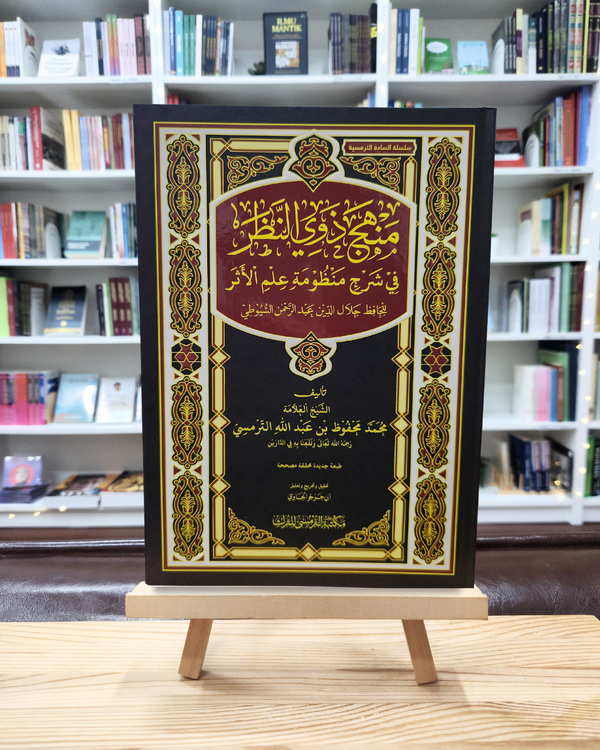 ILMU
MANTIK
سلسلة السادة الترمسية
مَنْهَجُ ذَوِي النَّظَرِ
فِي شَرْحِ مَنْظُومَةِ عِلْمِ الْأَثَرِ
لِلْحَافِظِ جَلَالِ الدِّينِ عَبْدِ الرَّحْمٰنِ السُّيُوطِيِّ
تأليف
الشَّيْخِ الْعَلَّامَة
مُحَمَّد مَحْفُوظ بن عَبْدِ اللهِ التَّرْمَسِيّ
رَحِمَهُ الله تَعَالَى وَنَفَعَنَا بِهِ فِي الدَّارَيْن
طبعة جديدة محققة مصححة
تحقيق وتخريج وتعليق
ابن حرجو الجاوي
مكتبة الترمسي للتراث